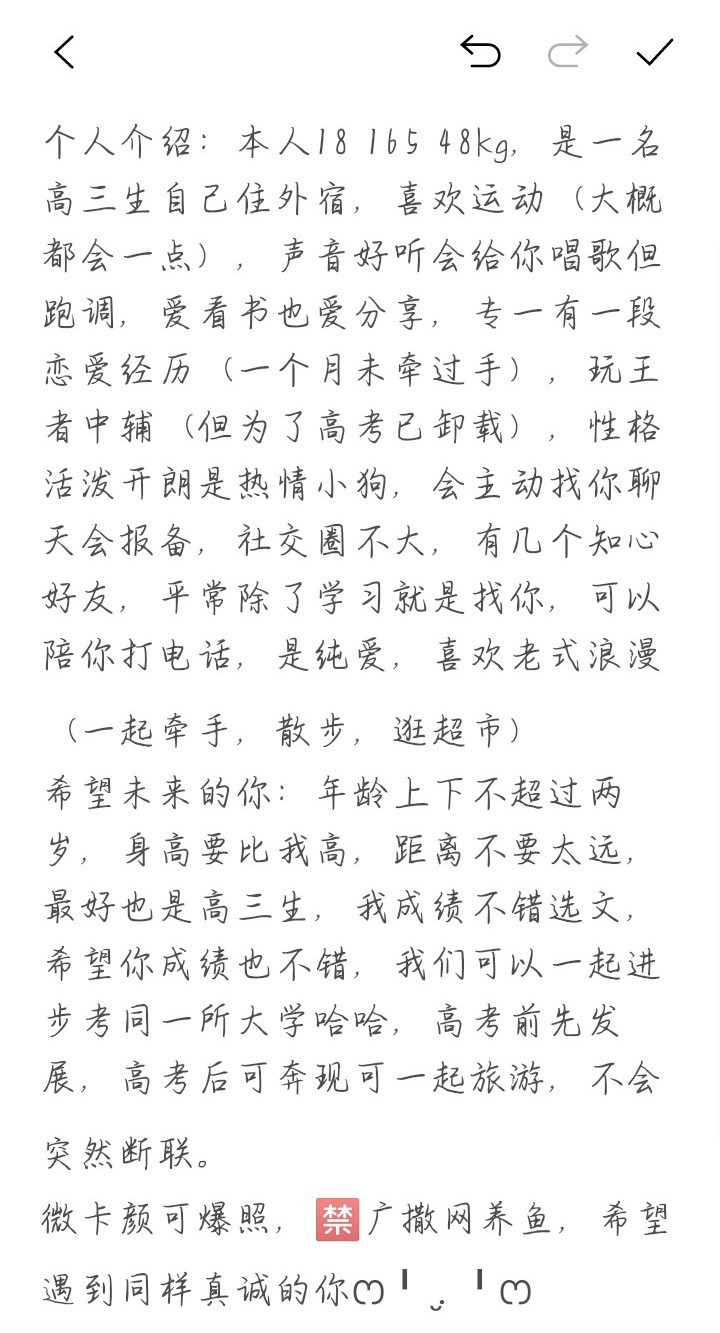 个人介绍：本人18 165 48kg，是一名
高三生自己住外宿，喜欢运动（大概
都会一点），声音好听会给你唱歌但
跑调，爱看书也爱分享，专一有一段
恋爱经历（一个月未牵过手），玩王
者中辅（但为了高考已卸载），性格
活泼开朗是热情小狗，会主动找你聊
天会报备，社交圈不大，有几个知心
好友，平常除了学习就是找你，可以
陪你打电话，是纯爱，喜欢老式浪漫
（一起牵手，散步，逛超市）
希望未来的你：年龄上下不超过两
岁，身高要比我高，距离不要太远，
最好也是高三生，我成绩不错选文，
希望你成绩也不错，我们可以一起进
步考同一所大学哈哈，高考前先发
展，高考后可奔现可一起旅游，不会
突然断联。
微卡颜可爆照，🈲广撒网养鱼，希望
遇到同样真诚的你ෆ╹ .̮ ╹ෆ